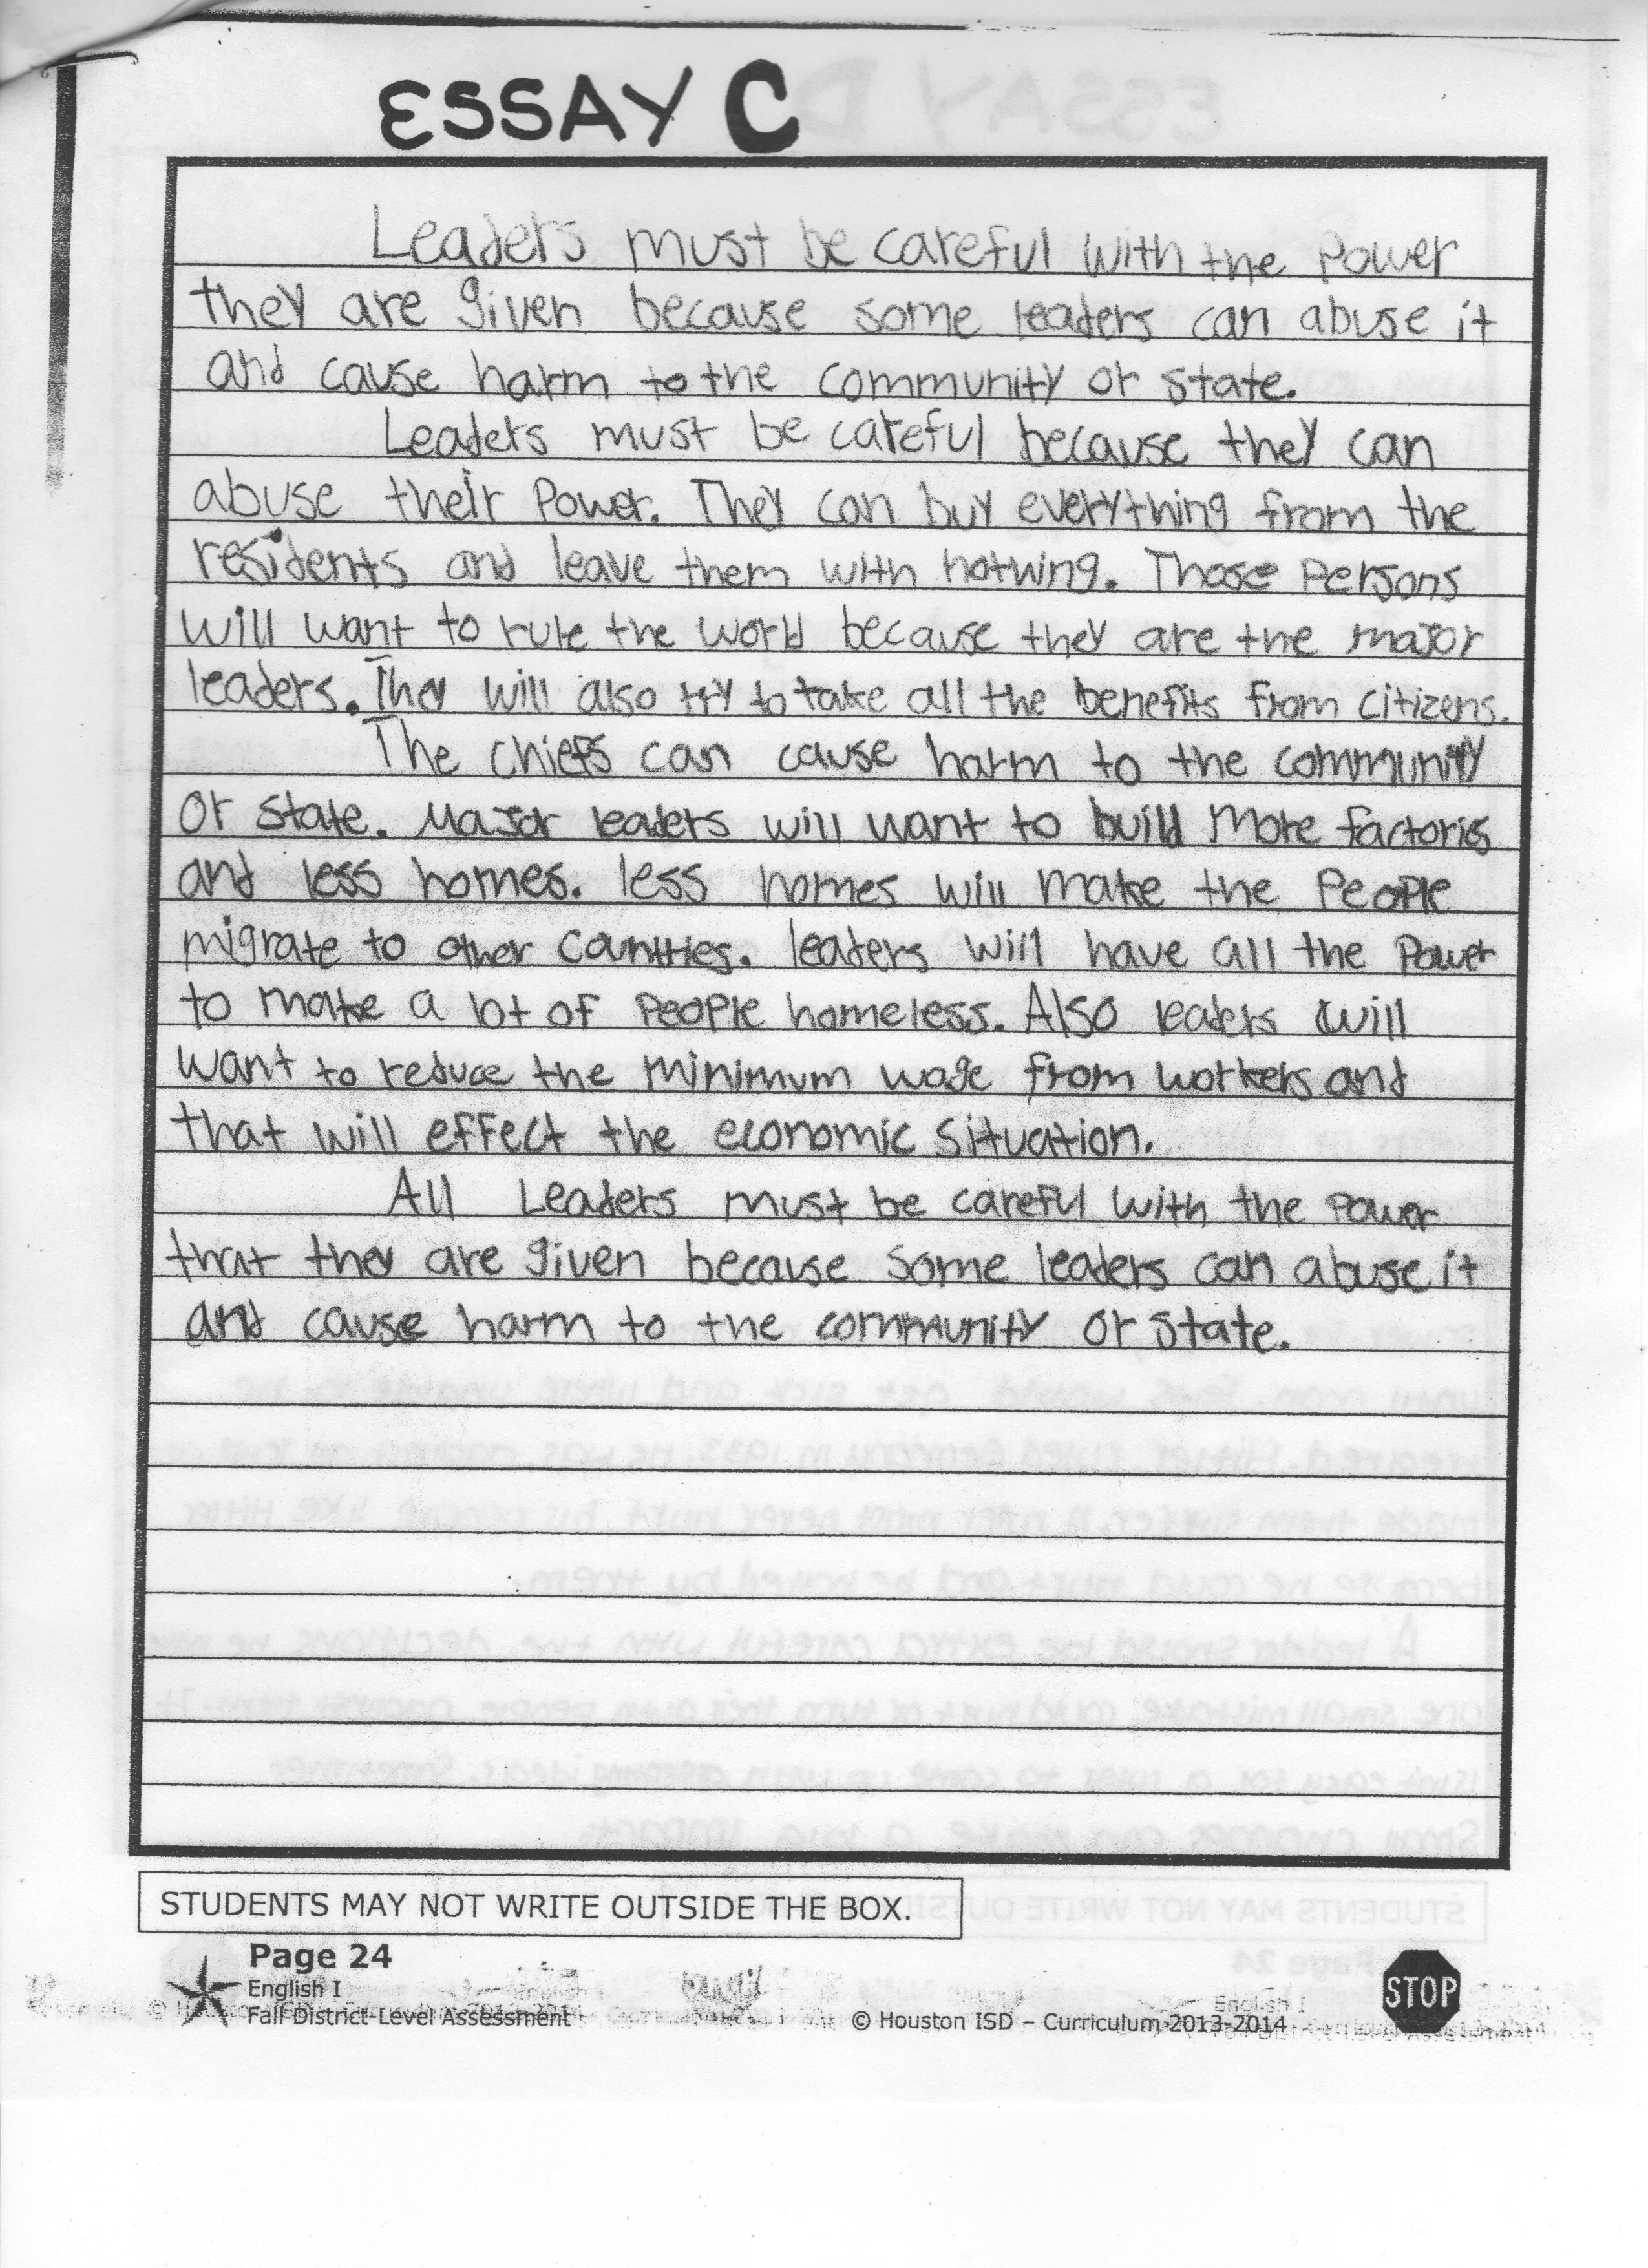 ESSAY C
Leaders must be careful with the Power
they are given because some leaders can abuse it
and cause harm to the community or state.
Leaders must be careful because they can
abuse their Power. They can buy everything from the
residents and leave them with nothing. Those Persons
will want to rule the world because they are the major
leaders. They will also try to take all the benefits from citizens.
The chiefs can cause harm to the community
or state. Major leaders will want to build More factories
and less homes. less homes will make the People
migrate to other Countries. leaders will have all the Power
to make a lot of People homeless. Also leaders will
want to reduce the minimum wage from workers and
that will effect the economic situation.
All Leaders must be careful with the Power
that they are given because some leaders can abuse it
and cause harm to the community or state.
STUDENTS MAY NOT WRITE OUTSIDE THE BOX.
Page 24
English I
Fall District-Level Assessment
© Houston ISD – Curriculum 2013-2014
STOP